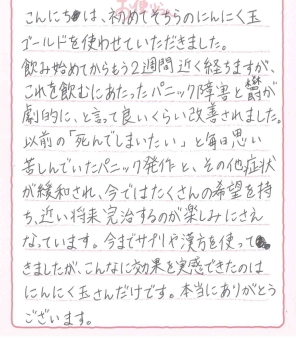 こんにちは、初めてそちらのにんにく玉
ゴールドを使わせていただきました。
飲み始めてからもう2週間近く経ちますが、
これを飲むにあたったパニック障害と鬱が
劇的に、と言って良いくらい改善されました。
以前の「死んでしまいたい」と毎日思い
苦しんでいたパニック発作と、その他症状
が緩和され、今ではたくさんの希望を持
ち、近い将来、完治するのが楽しみにさえ
なっています。今までサプリや漢方を使って
きましたが、こんなに効果を実感できたのは
にんにく玉さんだけです。本当にありがとう
ございます。